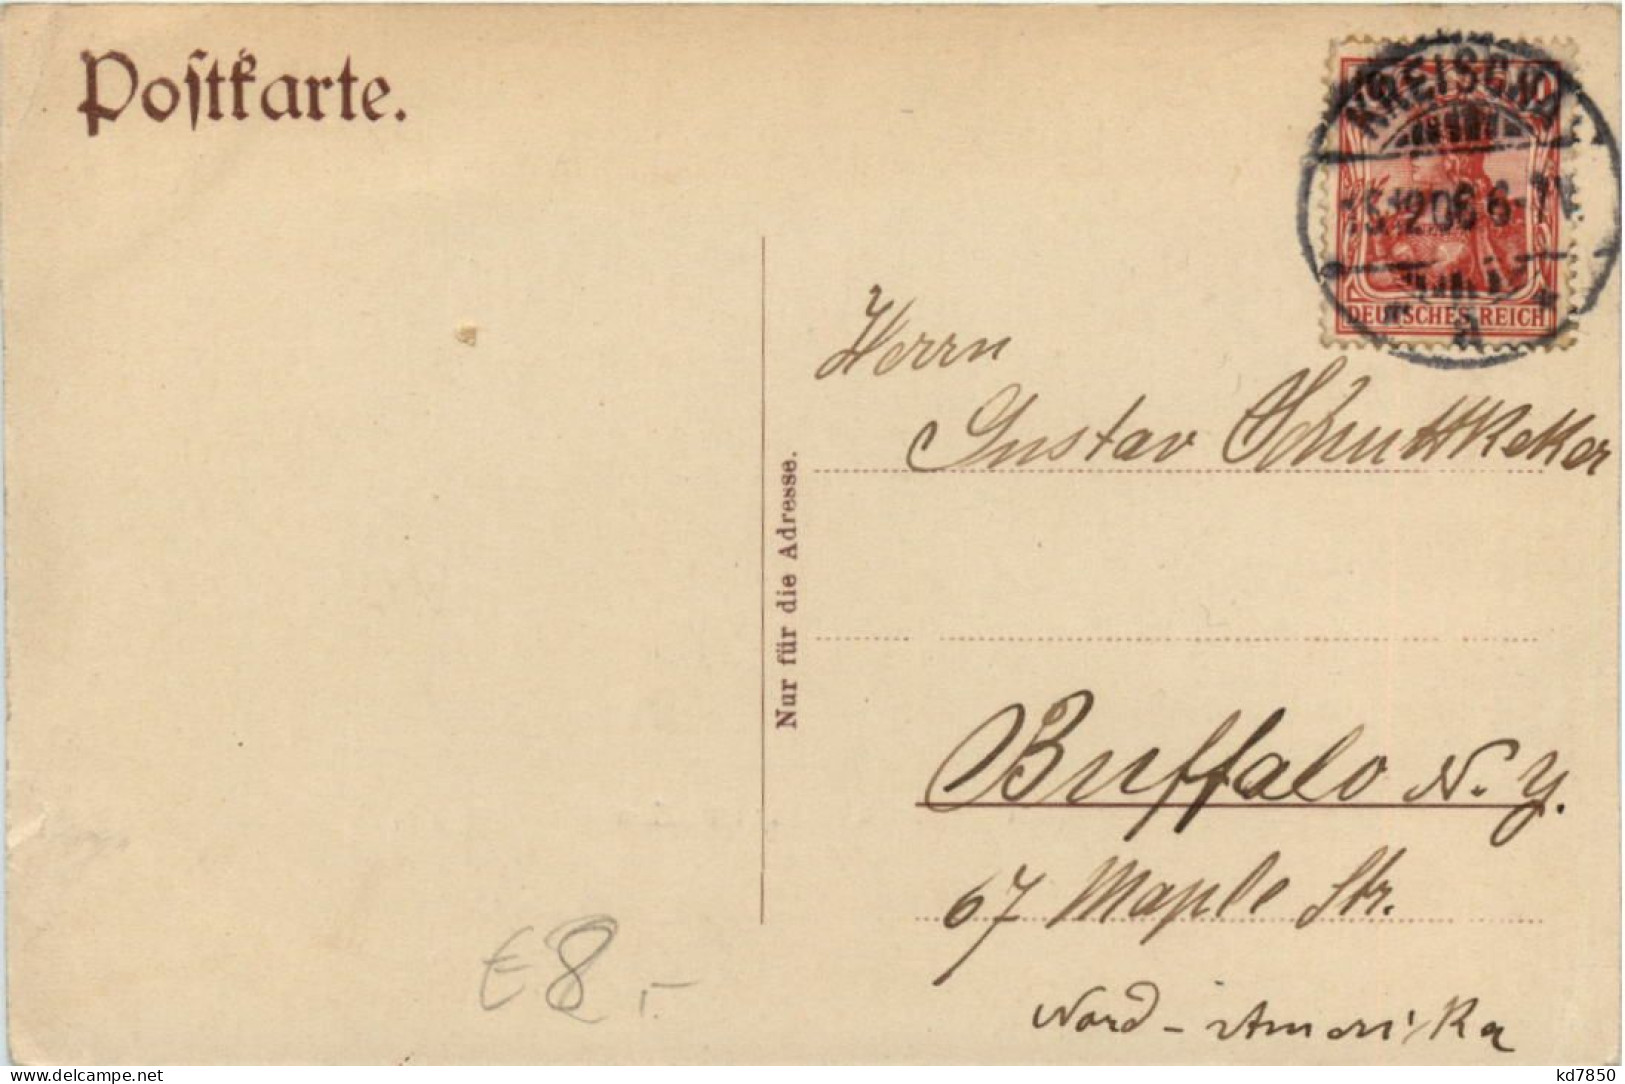 Postkarte.
KREISCHA
12.06 6-7N
DEUTSCHES REICH
a
Nur für die Adresse.
Herrn
Gustav
Buffalo N. Y.
67 Maple Str.
Nord-Amerika
€8,-
delcampe.net
kd7850